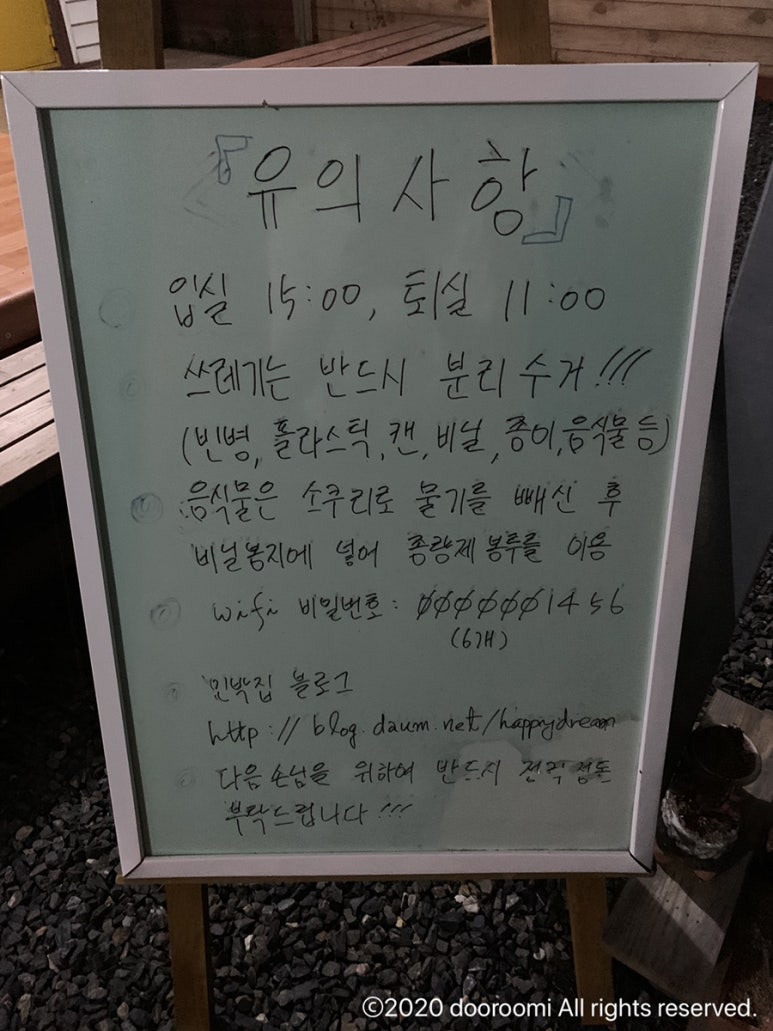 『유의사항』
입실 15:00, 퇴실 11:00
쓰레기는 반드시 분리수거!!!
(빈병, 플라스틱, 캔, 비닐, 종이, 음식물 등)
음식물은 소쿠리로 물기를 빼신 후
비닐봉지에 넣어 종량제봉투를 이용
wifi 비밀번호: 0000001456
(6개)
민박집 블로그
http://blog.daum.net/happydream
다음 손님을 위하여 반드시 정돈
부탁드립니다!!!
©2020 dooroomi All rights reserved.